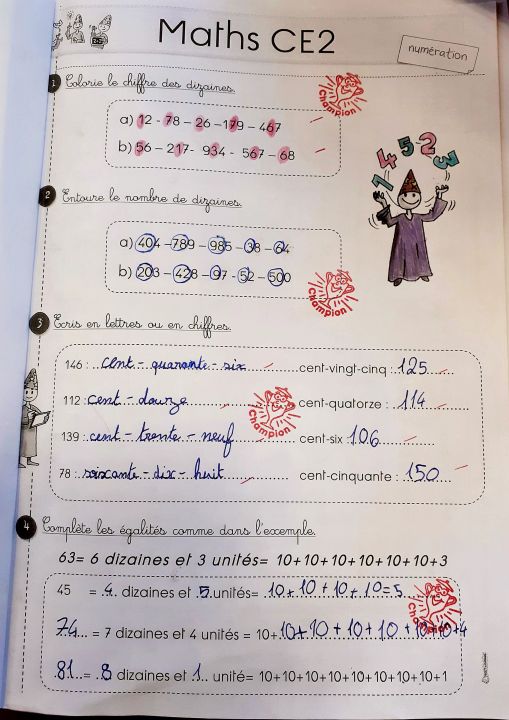 Maths CE2
numération
1 Colorie le chiffre des dizaines.
Champion
a) 12 - 78 - 26 - 179 - 467
b) 56 - 217 - 934 - 567 - 68
4 5 2
1 3
2 Entoure le nombre de dizaines.
a) 404 - 789 - 985 - 38 - 64
b) 203 - 428 - 97 - 52 - 500
Champion
3 Ecris en lettres ou en chiffres.
146 : cent - quarante - six cent-vingt-cinq : 125
112 : cent - douze cent-quatorze : 114
Champion
139 : cent - trente - neuf cent-six 106
78 : soixante - dix - huit cent-cinquante : 150
4 Complète les égalités comme dans l'exemple.
63= 6 dizaines et 3 unités= 10+10+10+10+10+10+3
45 = 4 dizaines et 5 unités= 10+10+10+10=5
Champion
74 = 7 dizaines et 4 unités = 10+10+10+10+10+10+10+4
81 = 8 dizaines et 1 unité= 10+10+10+10+10+10+10+10+1